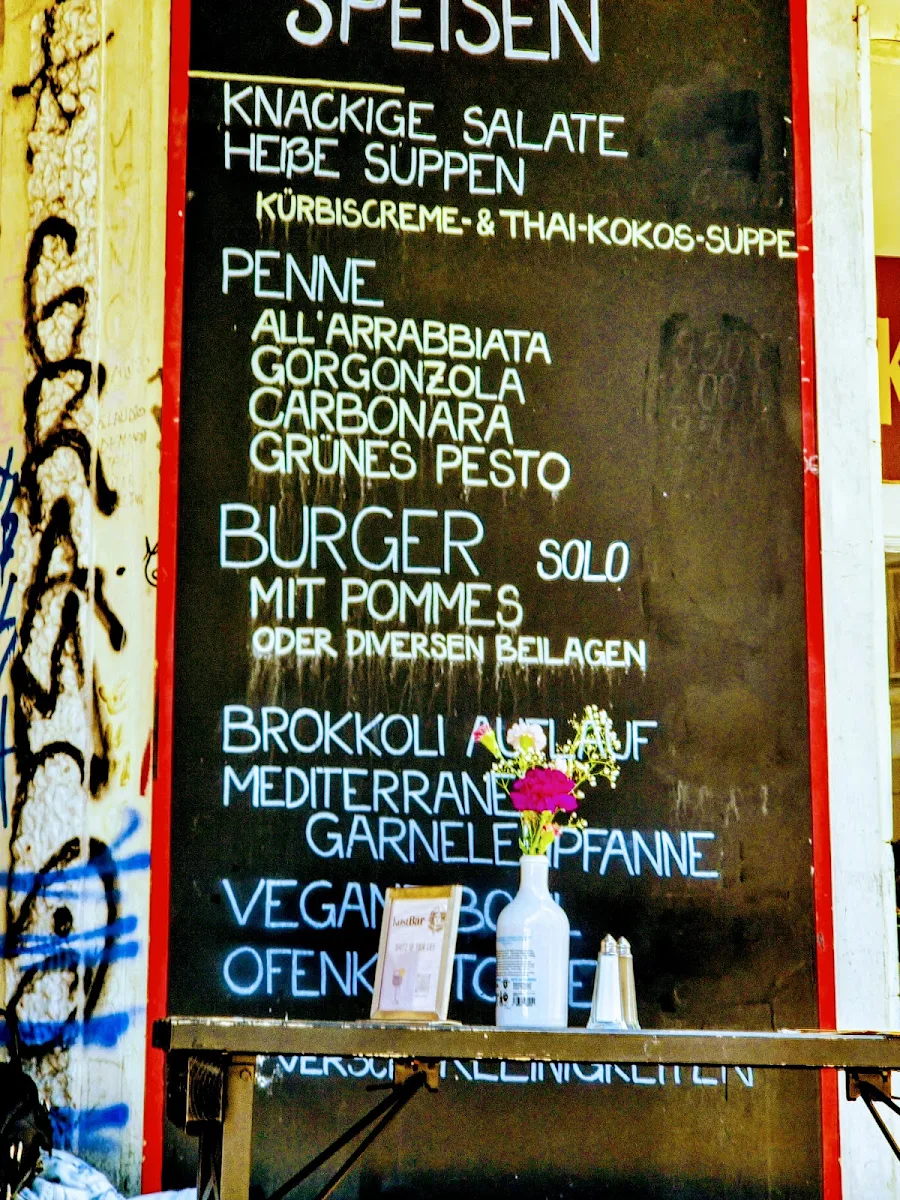 SPEISEN
KNACKIGE SALATE
HEIßE SUPPEN
KÜRBISCREME- & THAI-KOKOS-SUPPE
PENNE
ALL'ARRABBIATA
GORGONZOLA
CARBONARA
GRÜNES PESTO
BURGER SOLO
MIT POMMES
ODER DIVERSEN BEILAGEN
BROKKOLI AUFLAUF
MEDITERRANE
GARNELENPFANNE
VEGANE BOWL
OFENKARTOFFEL
KLEINIGKEITEN